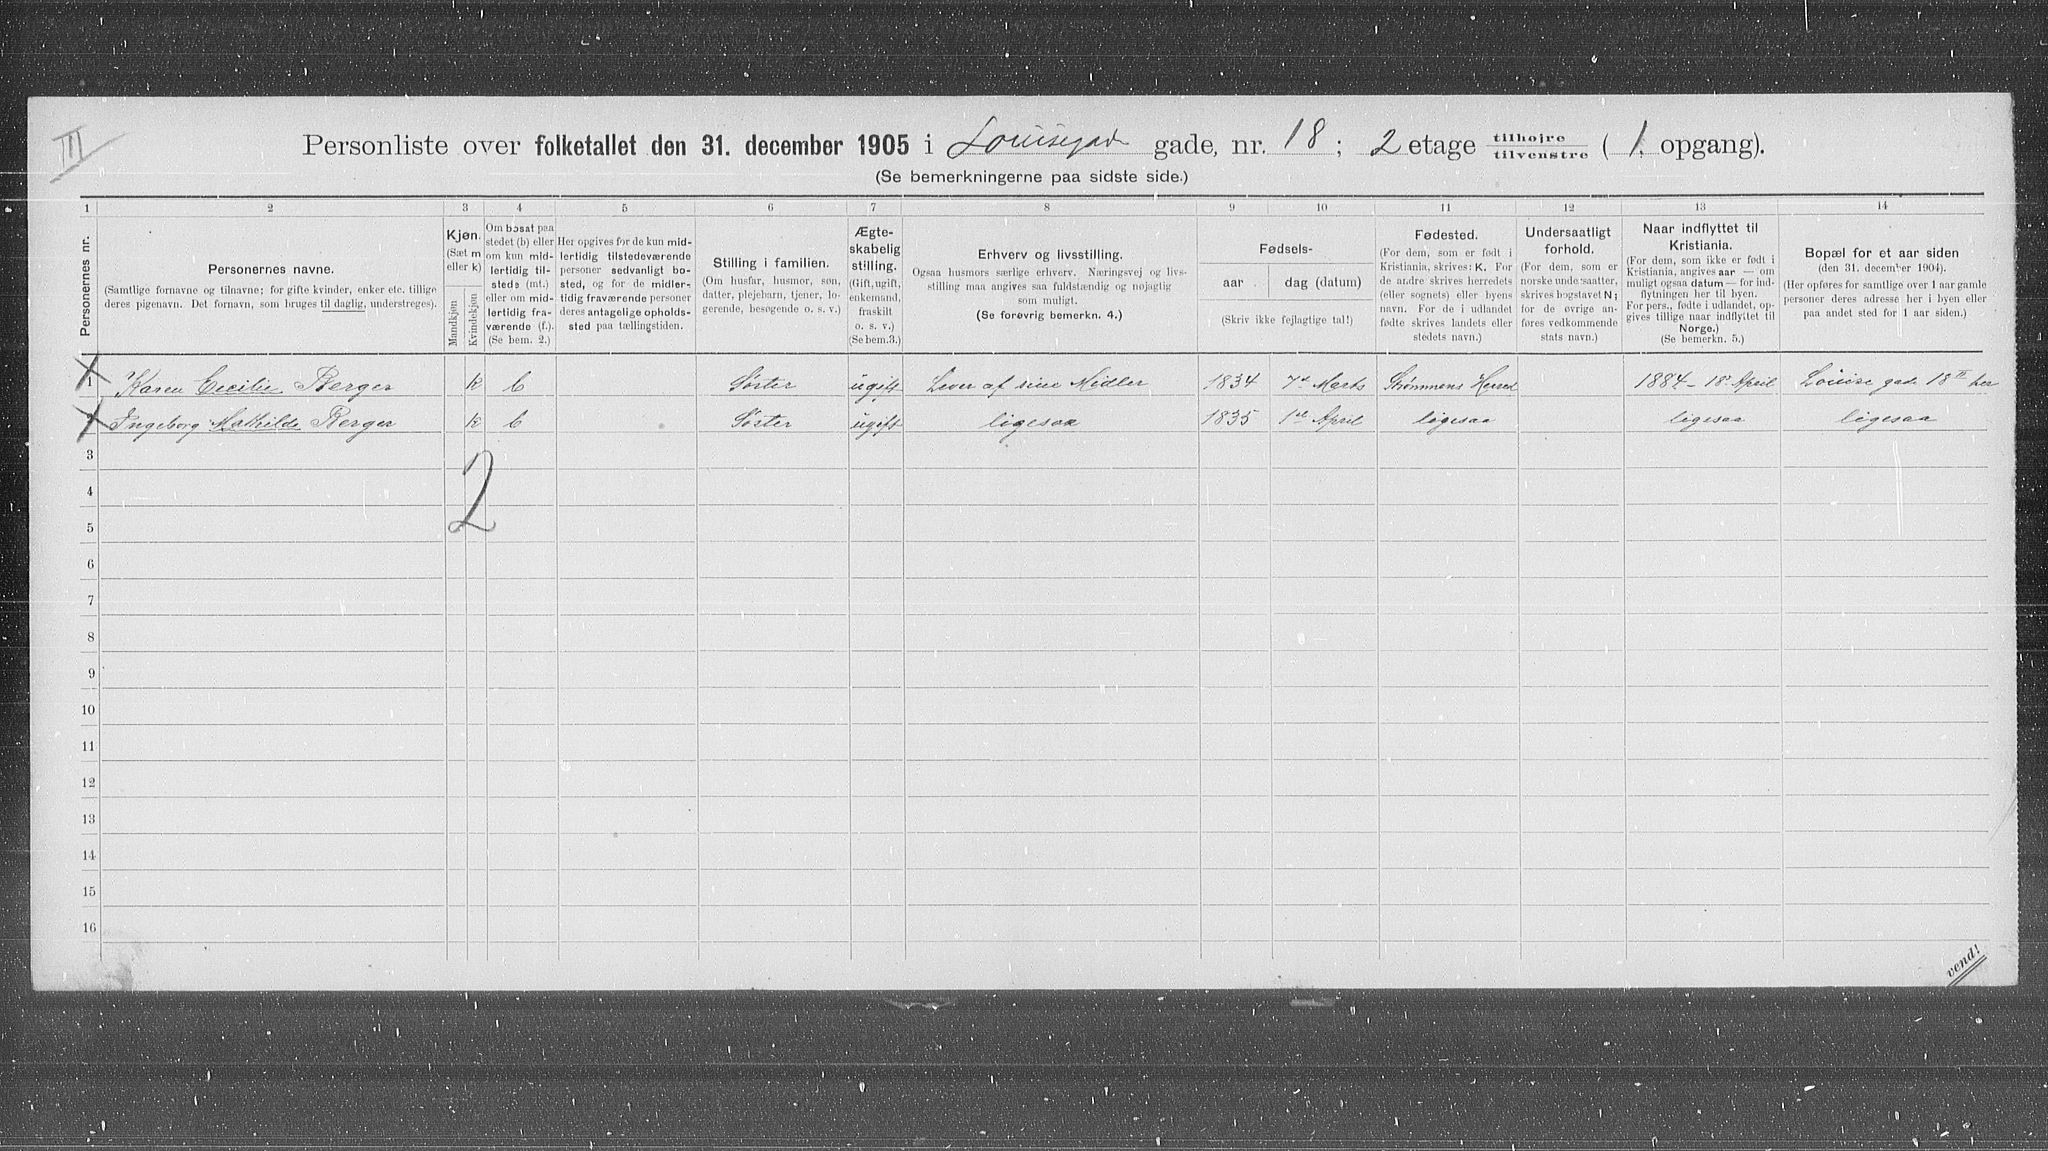 III
Personliste over folketallet den 31. december 1905 i Louisegade gade, nr. 18; 2 etage tilhøjre/tilvenstre (1. opgang).
(Se bemerkningerne paa sidste side.)
1 2 3 4 5 6 7 8 9 10 11 12 13 14
Personernes nr.
Personernes navne.
(Samtlige fornavne og tilnavne; for gifte kvinder, enker etc. tillige
deres pigenavn. Det fornavn, som bruges til daglig, understreges).
Kjøn.
(Sæt m
eller k)
Mandkjøn
Kvindekjøn
Om bosat paa
stedet (b) eller
om kun mid-
lertidig til-
stede (mt.)
eller om mid-
lertidig fra-
værende (f.).
(Se bem. 2.)
Her opgives for de kun mid-
lertidig tilstedeværende
personer sedvanligt bo-
sted, og for de midler-
tidig fraværende personer
deres antagelige opholds-
sted paa tællingstiden.
Stilling i familien.
(Om husfar, husmor, søn,
datter, plejebarn, tjener, lo-
gerende, besøgende o. s. v.)
Ægte-
skabelig
stilling.
(Gift, ugift,
enkemand,
fraskilt
o. s. v.)
(Se bem. 3.)
Erhverv og livsstilling.
Ogsaa husmors særlige erhverv. Næringsvej og livs-
stilling maa angives saa fuldstændig og nøjagtig
som muligt.
(Se forøvrig bemerkn. 4.)
Fødsels-
aar dag (datum)
(Skriv ikke fejlagtige tal!)
Fødested.
(For dem, som er født i
Kristiania, skrives: K. For
de andre skrives herredets
(eller sognets) eller byens
navn. For de i udlandet
fødte skrives landets eller
stedets navn.)
Undersaatligt
forhold.
(For dem, som er
norske undersaatter,
skrives bogstavet N;
for de øvrige an-
føres vedkommende
stats navn.)
Naar indflyttet til
Kristiania.
(For dem, som ikke er født i
Kristiania, angives aar — om
muligt ogsaa datum — for ind-
flytningen her til byen.
For pers., fødte i udlandet, op-
gives tillige naar indflyttet til
Norge.)
(Se bemerkn. 5.)
Bopæl for et aar siden
(den 31. december 1904).
(Her opføres for samtlige over 1 aar gamle
personer deres adresse her i byen eller
paa andet sted for 1 aar siden.)
1 Karen Cecilie Berger k b Søster ugift Lever af sine Midler 1834 7de Marts Strømmens Herred 1884 - 18 April Louise gade 18 II her
2 Ingeborg Mathilde Berger k b Søster ugift ligesaa 1835 1ste April ligesaa ligesaa ligesaa
3
2
4
5
6
7
8
9
10
11
12
13
14
15
16
vend!